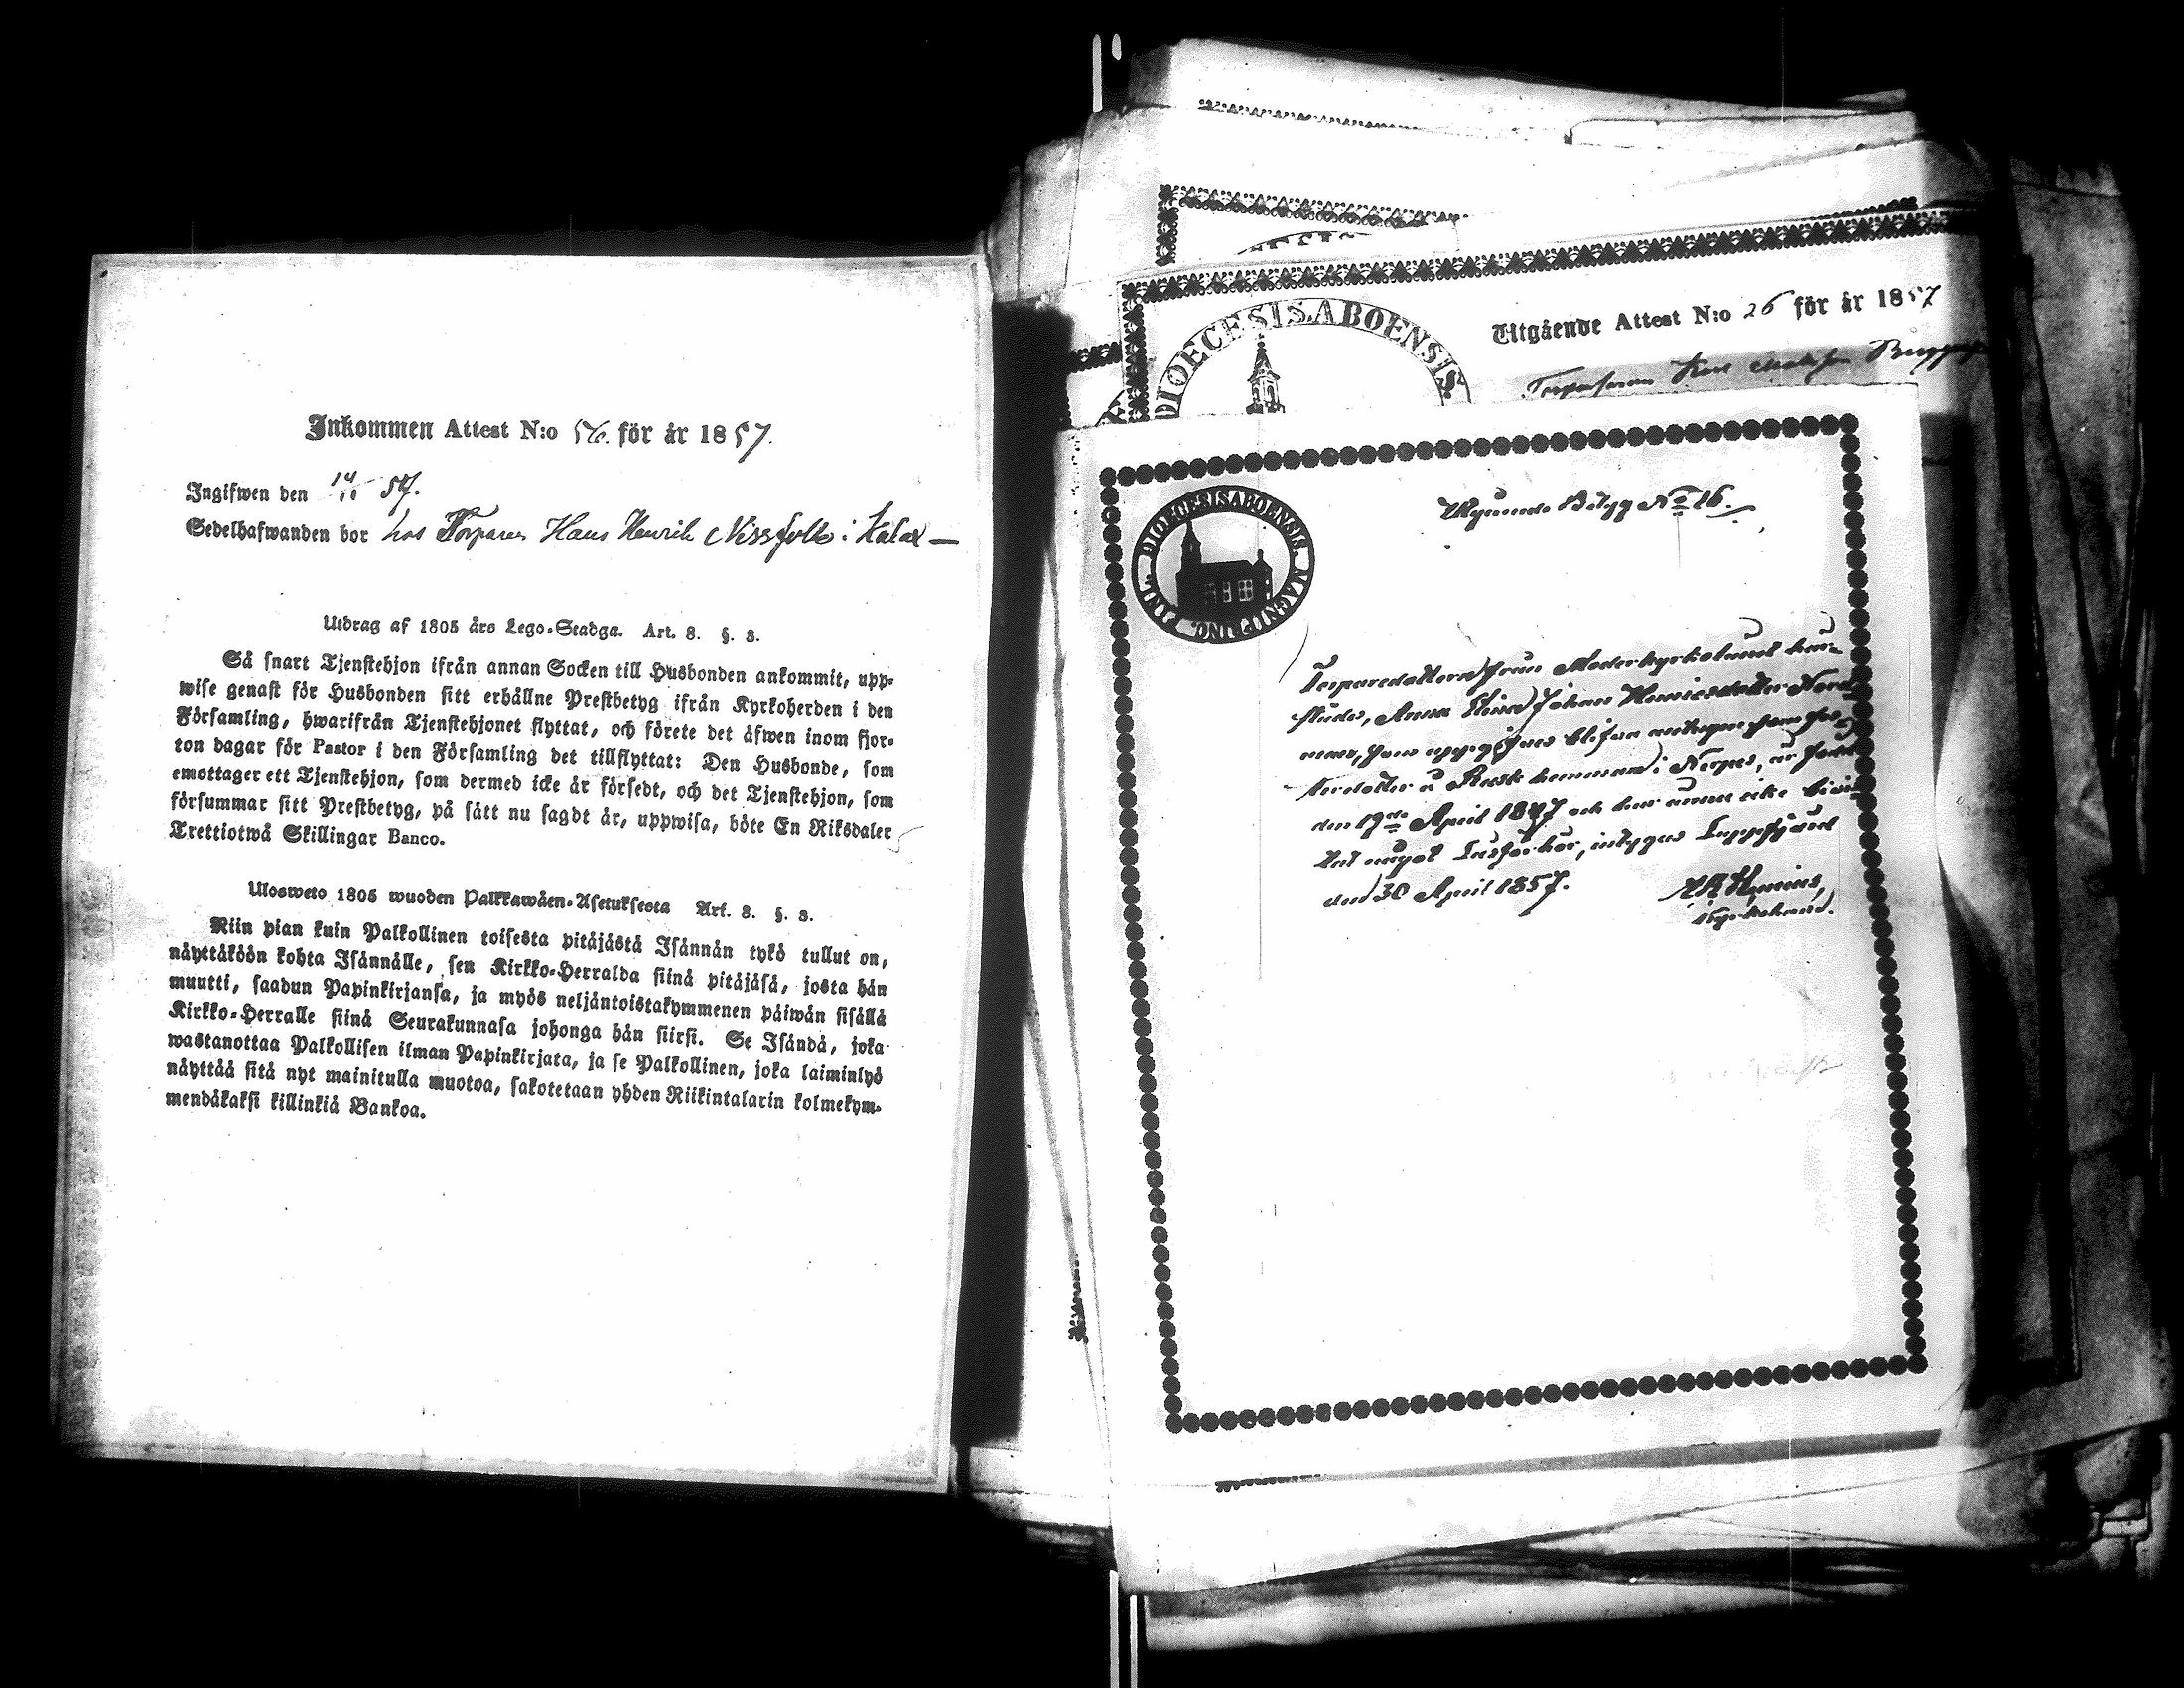 Inkommen Attest N:o 56. för år 1857.
Ingifwen den 14/11 57.
Sedelhafwanden bor hos Torparen Hans Henrik Nissfolk i Kalax —
Utdrag af 1805 års Lego-Stadga. Art. 8. §. 8.
Så snart Tjenstehjon ifrån annan Socken till Husbonden ankommit, upp-
wise genast för Husbonden sitt erhållne Prestbetyg ifrån Kyrkoherden i den
Församling, hwarifrån Tjenstehjonet flyttat, och förete det äfwen inom fjor-
ton dagar för Pastor i den Församling det tillflyttat: Den Husbonde, som
emottager ett Tjenstehjon, som dermed icke är försedt, och det Tjenstehjon, som
försummar sitt Prestbetyg, på sätt nu sagdt är, uppwisa, böte En Riksdaler
Trettiotwå Skillingar Banco.
Ulosweto 1805 wuoden Palkkawäen-Asetuksesta Art. 8. §. 8.
Niin pian kuin Palkollinen toisesta pitäjästä Isännän tykö tullut on,
näyttäköön kohta Isännälle, sen Kirkko-Herralda siinä pitäjäsä, josta hän
muutti, saadun Papinkirjansa, ja myös neljäntoistakymmenen päiwän sisällä
Kirkko-Herralle siinä Seurakunnasa johonga hän siirsi. Se Isändä, joka
wastanottaa Palkollisen ilman Papinkirjata, ja se Palkollinen, joka laiminlyö
näyttää sitä nyt mainitulla muotoa, sakotetaan yhden Riikintalarin kolmekym-
mendäkaksi killinkiä Bankoa.
DIOECESIS. ABOENSIS.
Utgående Attest N:o 26 för år 1857
Torparsonen Karl
DIOECESIS ABOENSIS. MAGNI PRINC. FINL.
Utgående Betyg No 16.
Torparedottern från Moderkyrkolandt här-
städes, Anna Elisa Johan Henricsdotter Nord
man, som uppgifves blifvan antagen som fos
terdotter å Rusk hemman i Nerpes, är född
den 19de April 1847 och har ännu icke bivi
stat något Läsförhör, intygas Lappfjärd
den 30 April 1857.
Kyrkoherde.